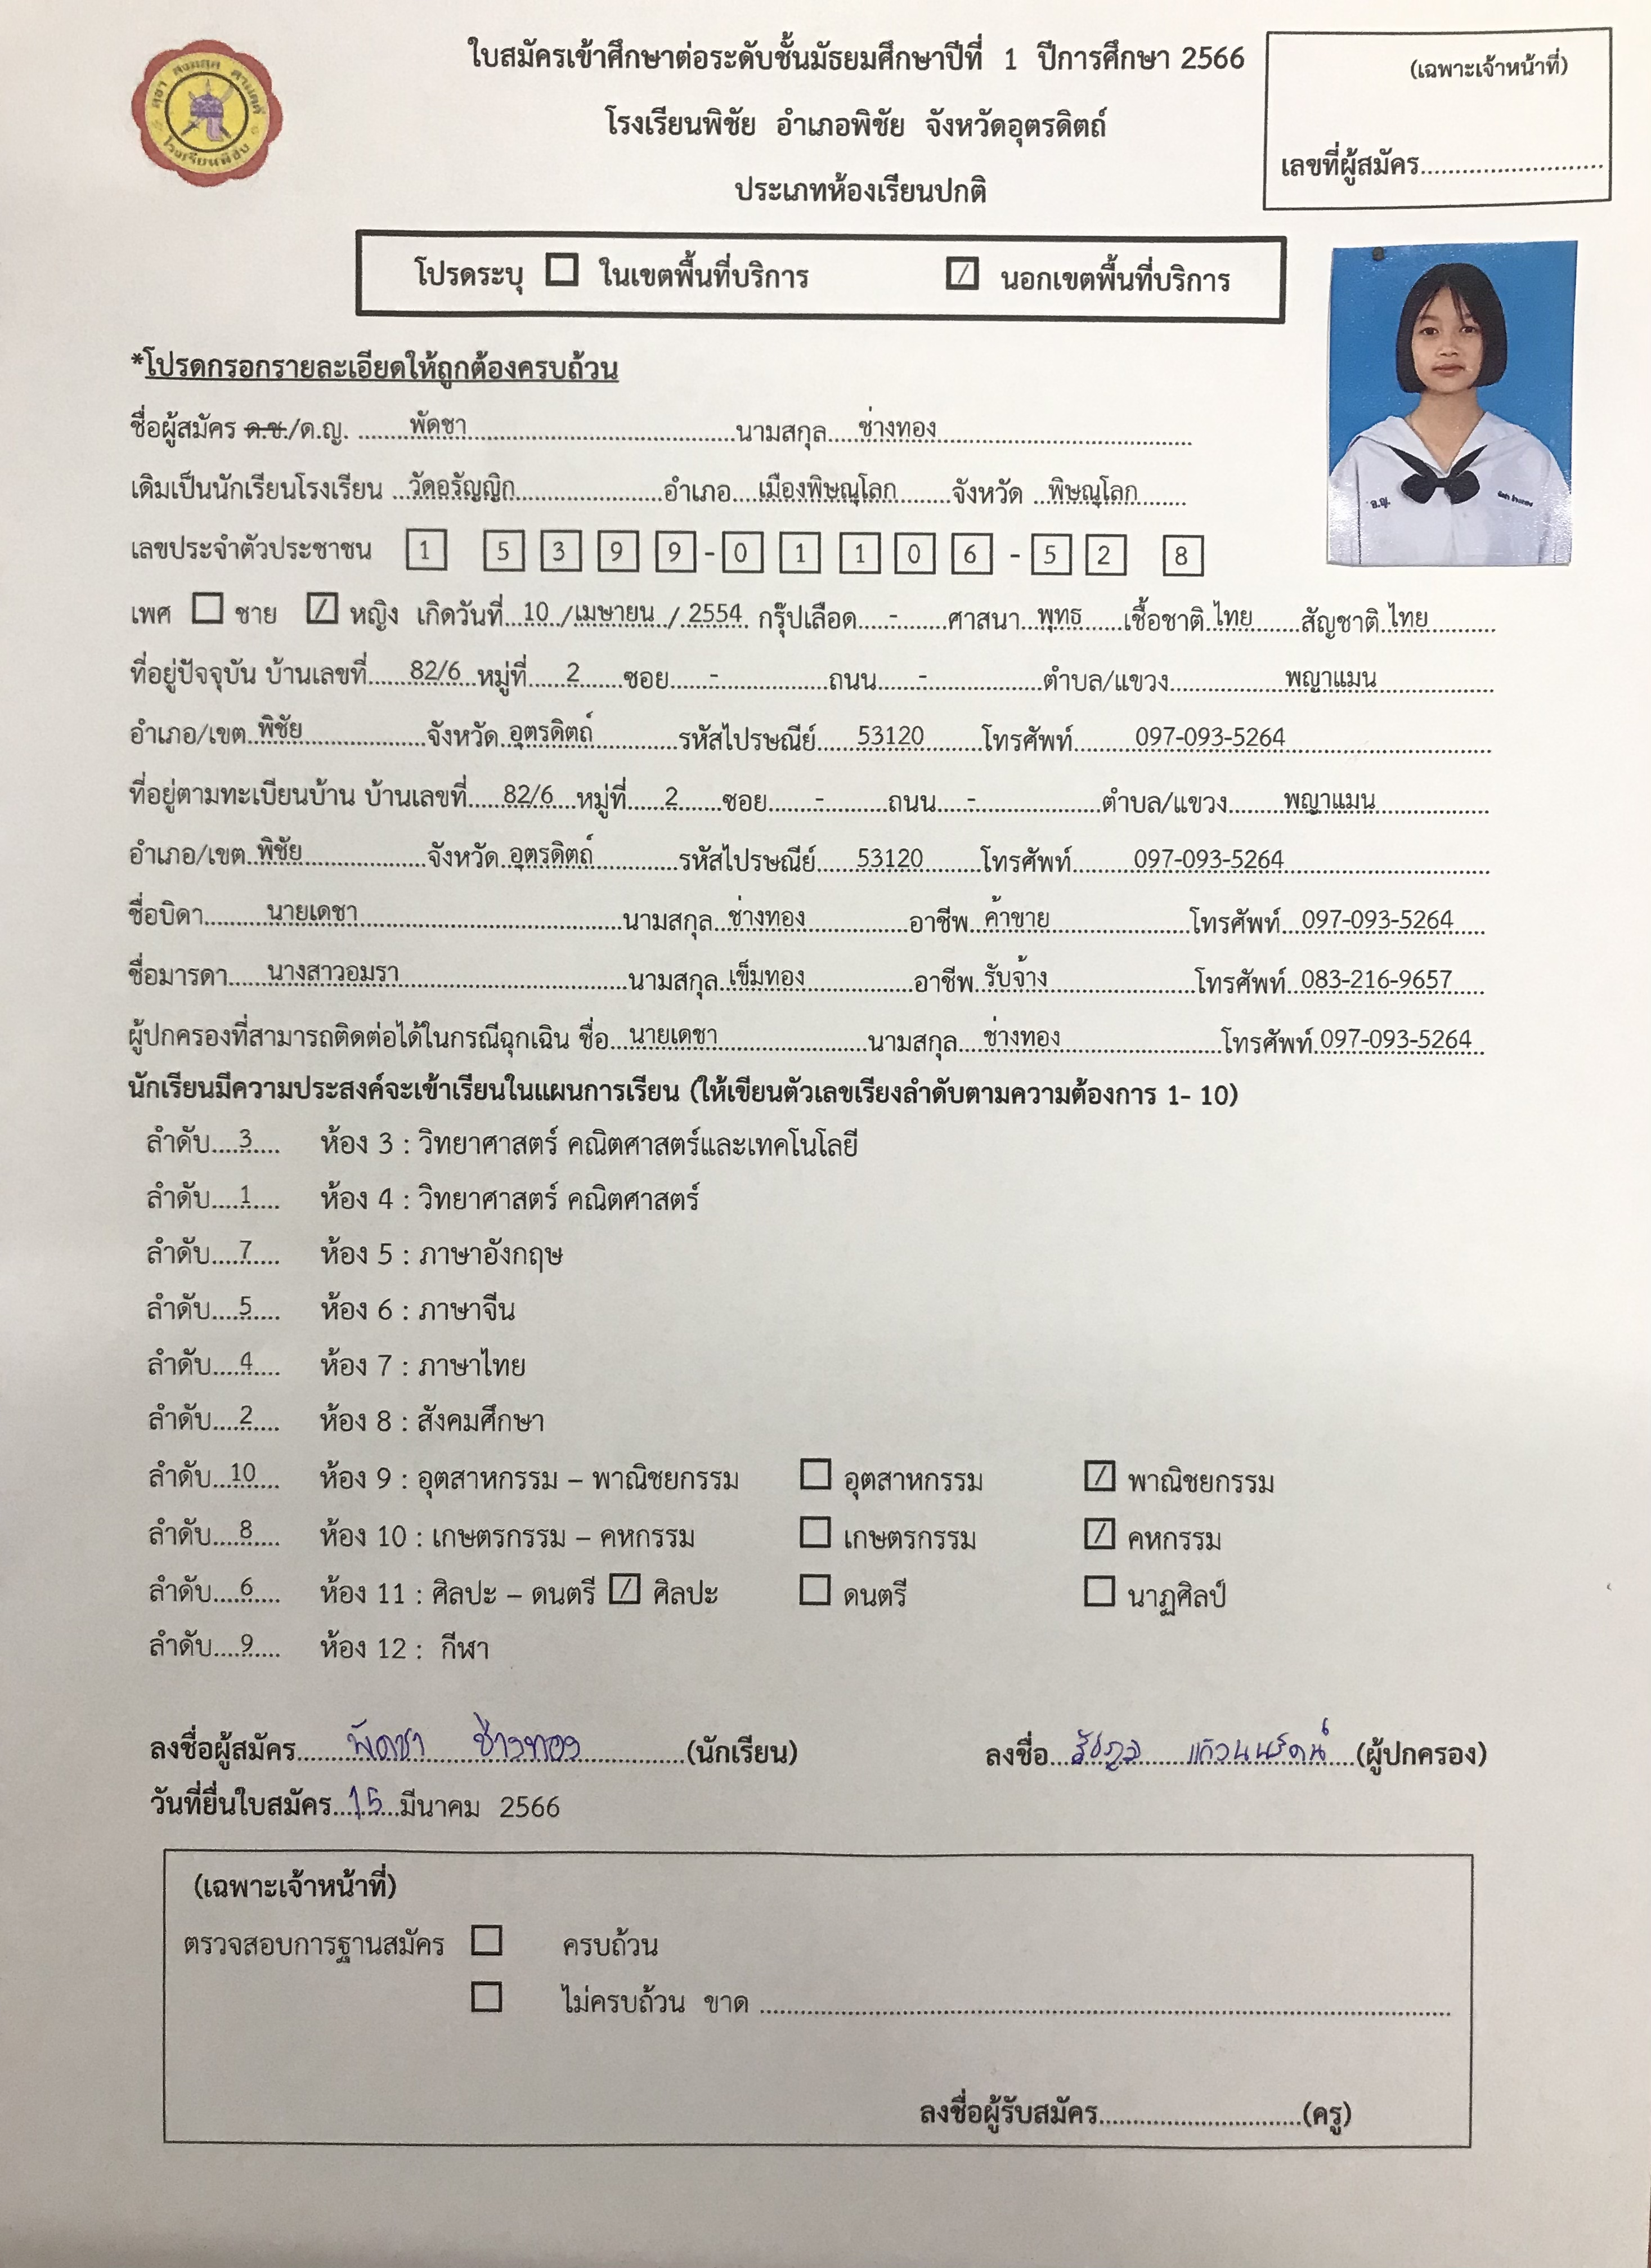 ใบสมัครเข้าศึกษาต่อระดับชั้นมัธยมศึกษาปีที่ 1 ปีการศึกษา 2566
(เฉพาะเจ้าหน้าที่)
โรงเรียนพิชัย อำเภอพิชัย จังหวัดอุตรดิตถ์
เลขที่ผู้สมัคร............................
ประเภทห้องเรียนปกติ
โรงเรียนพิชัย
โปรดระบุ ☐ ในเขตพื้นที่บริการ ☑ นอกเขตพื้นที่บริการ
*โปรดกรอกรายละเอียดให้ถูกต้องครบถ้วน
ชื่อผู้สมัคร ด.ช./ด.ญ. ........พัดชา........นามสกุล....ช่างทอง........
อ.ญ.
เดิมเป็นนักเรียนโรงเรียน ...วัดอรัญญิก........อำเภอ....เมืองพิษณุโลก........จังหวัด ..พิษณุโลก........
เลขประจำตัวประชาชน 1 5 3 9 9 - 0 1 1 0 6 - 5 2 8
เพศ ☐ ชาย ☑ หญิง เกิดวันที่...10../เมษายน../.2554. กรุ๊ปเลือด.....-.......ศาสนา...พุทธ......เชื้อชาติ.ไทย.......สัญชาติ.ไทย........
ที่อยู่ปัจจุบัน บ้านเลขที่......82/6..หมู่ที่......2......ซอย......-........ถนน......-........ตำบล/แขวง........พญาแมน........
อำเภอ/เขต..พิชัย........จังหวัด..อุตรดิตถ์........รหัสไปรษณีย์......53120........โทรศัพท์........097-093-5264........
ที่อยู่ตามทะเบียนบ้าน บ้านเลขที่......82/6...หมู่ที่......2......ซอย........-........ถนน........-........ตำบล/แขวง........พญาแมน........
อำเภอ/เขต..พิชัย........จังหวัด..อุตรดิตถ์........รหัสไปรษณีย์......53120........โทรศัพท์........097-093-5264........
ชื่อบิดา........นายเดชา........นามสกุล..ช่างทอง........อาชีพ..ค้าขาย........โทรศัพท์...097-093-5264....
ชื่อมารดา......นางสาวอมรา........นามสกุล..เข็มทอง........อาชีพ..รับจ้าง........โทรศัพท์..083-216-9657....
ผู้ปกครองที่สามารถติดต่อได้ในกรณีฉุกเฉิน ชื่อ...นายเดชา........นามสกุล....ช่างทอง........โทรศัพท์.097-093-5264..
นักเรียนมีความประสงค์จะเข้าเรียนในแผนการเรียน (ให้เขียนตัวเลขเรียงลำดับตามความต้องการ 1- 10)
ลำดับ....3.... ห้อง 3 : วิทยาศาสตร์ คณิตศาสตร์และเทคโนโลยี
ลำดับ....1.... ห้อง 4 : วิทยาศาสตร์ คณิตศาสตร์
ลำดับ....7.... ห้อง 5 : ภาษาอังกฤษ
ลำดับ....5.... ห้อง 6 : ภาษาจีน
ลำดับ....4.... ห้อง 7 : ภาษาไทย
ลำดับ....2.... ห้อง 8 : สังคมศึกษา
ลำดับ..10.... ห้อง 9 : อุตสาหกรรม – พาณิชยกรรม ☐ อุตสาหกรรม ☑ พาณิชยกรรม
ลำดับ....8.... ห้อง 10 : เกษตรกรรม – คหกรรม ☐ เกษตรกรรม ☑ คหกรรม
ลำดับ....6.... ห้อง 11 : ศิลปะ – ดนตรี ☑ ศิลปะ ☐ ดนตรี ☐ นาฏศิลป์
ลำดับ....9.... ห้อง 12 : กีฬา
ลงชื่อผู้สมัคร........พัดชา ช่างทอง........(นักเรียน) ลงชื่อ................(ผู้ปกครอง)
วันที่ยื่นใบสมัคร...15...มีนาคม 2566
(เฉพาะเจ้าหน้าที่)
ตรวจสอบการฐานสมัคร ☐ ครบถ้วน
☐ ไม่ครบถ้วน ขาด ................................................
ลงชื่อผู้รับสมัคร................................(ครู)